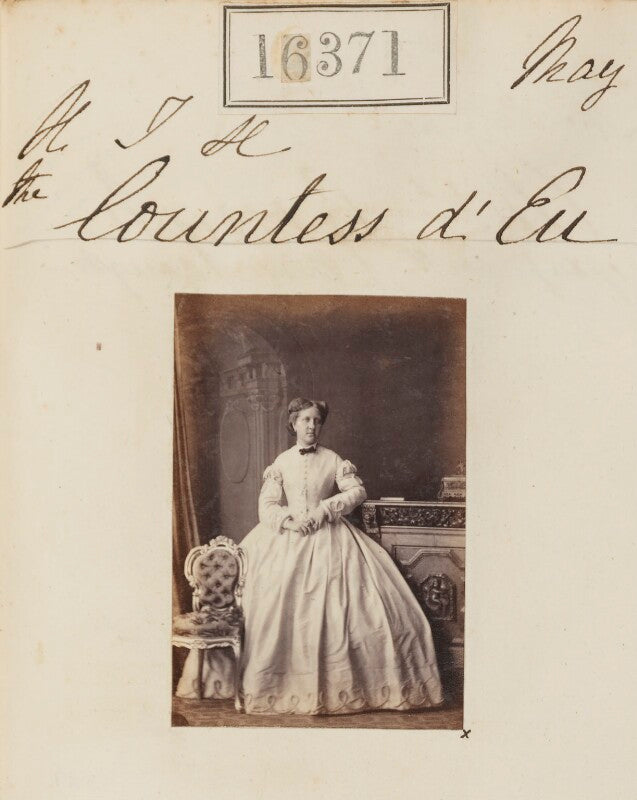 16371
May
H. I. H
the
Countess d'Eu
x